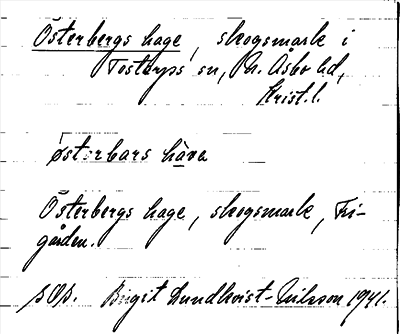 Österbergs hage, skogsmark i
Tostarps sn, N. Åsbo hd,
Krist.l.
østərbars hava
Österbergs hage, skogsmark, Fri-
gården.
Birgit Lundkvist-Nilsson 1941.